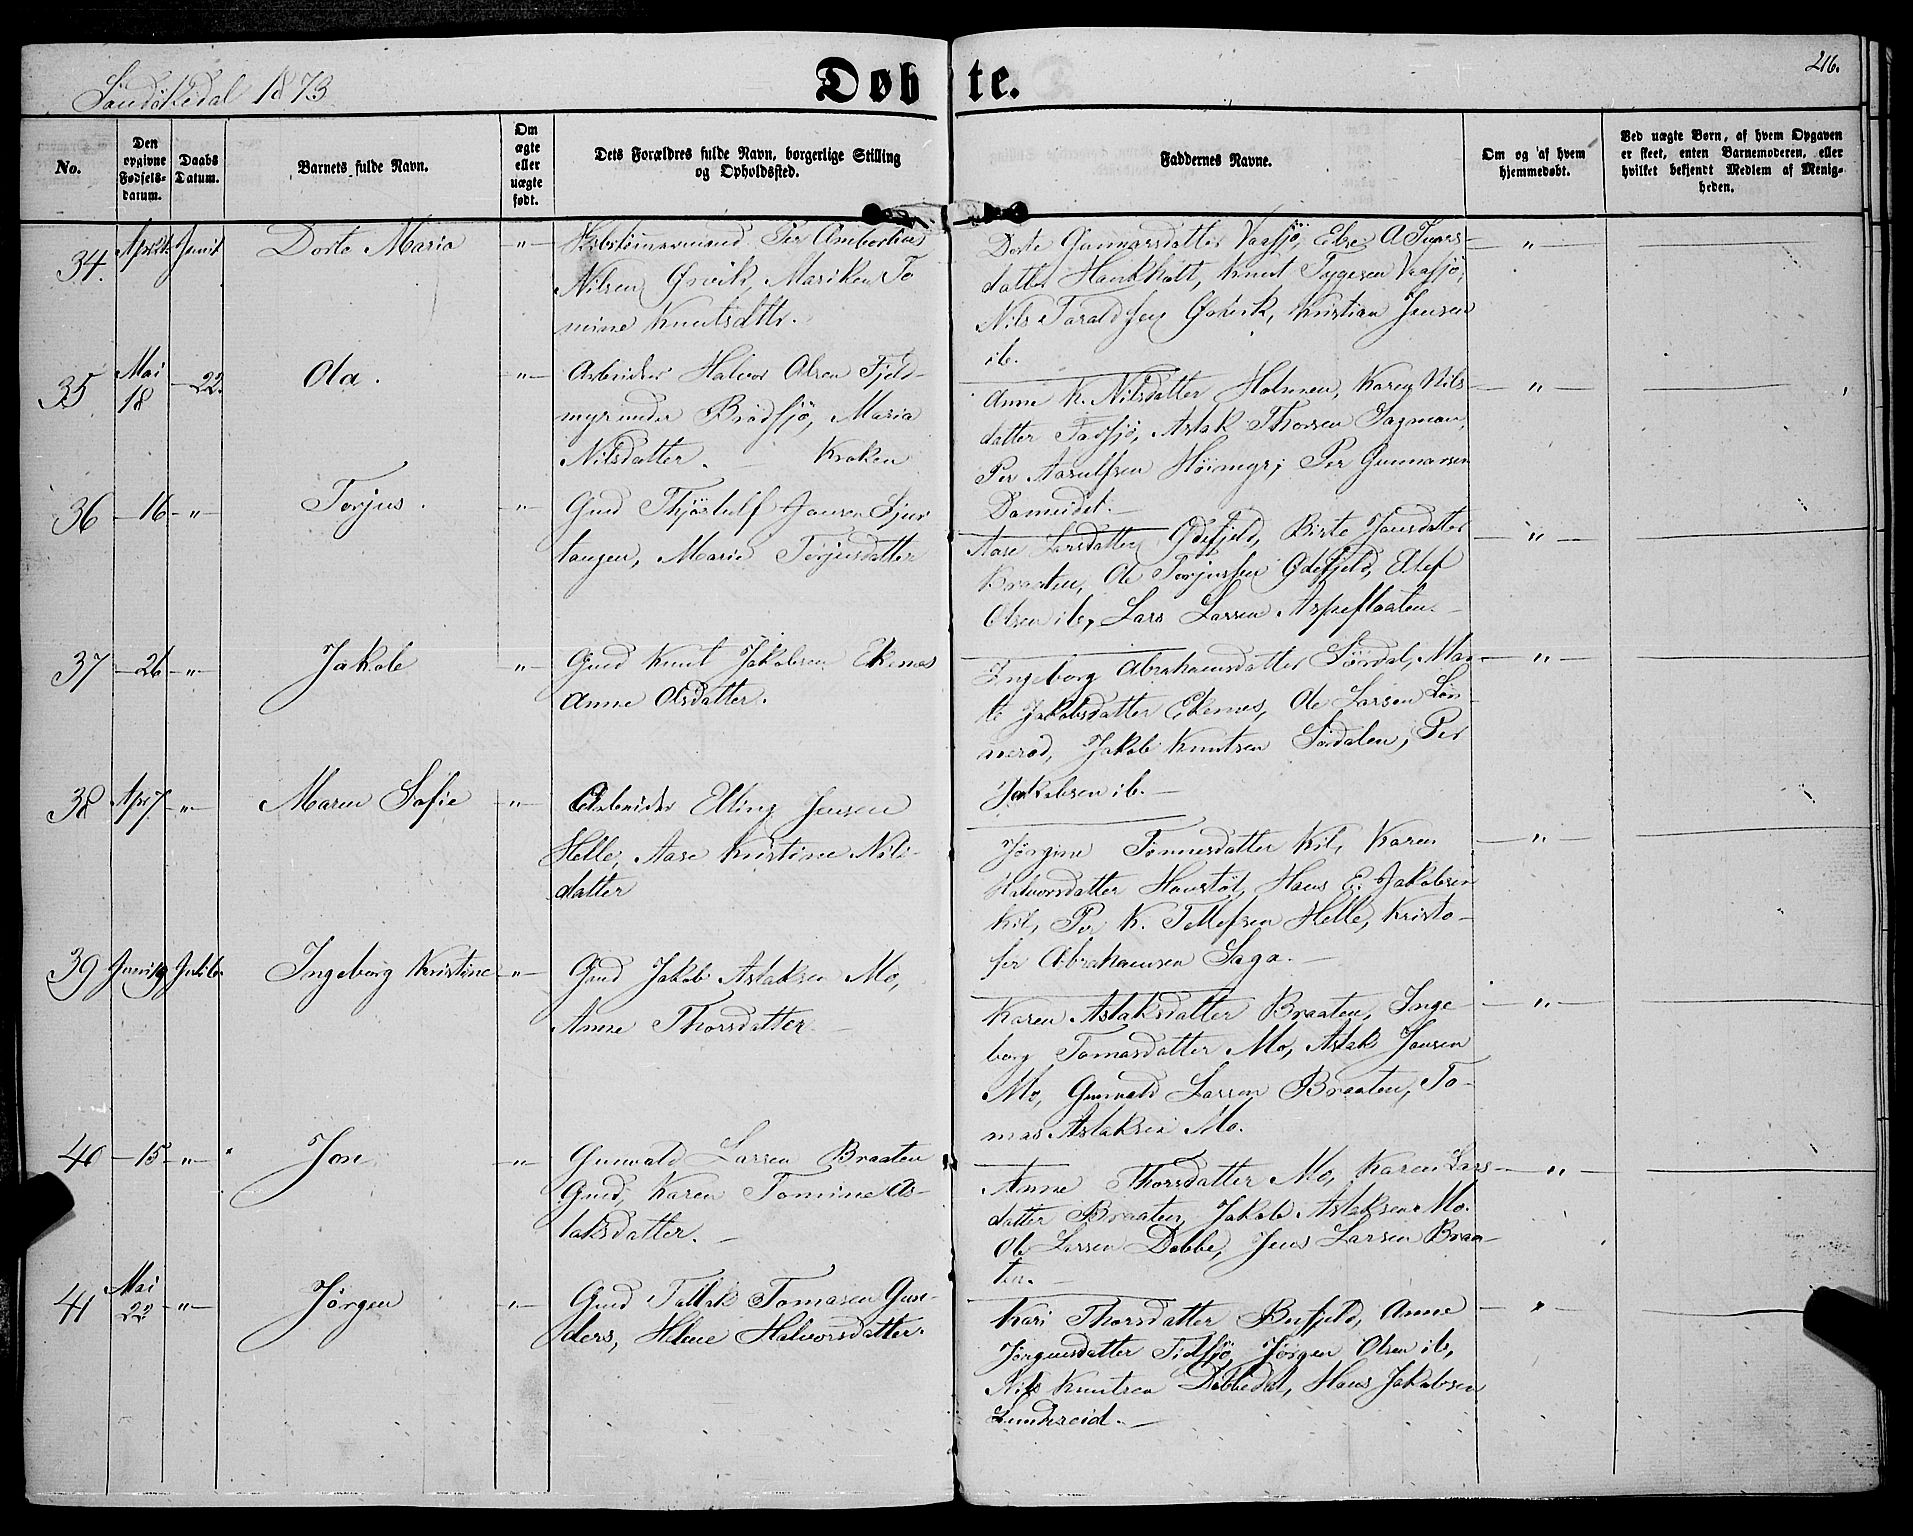 Sandøkedal 1873
Døbte.
26.
No.
Den opgivne Fødselsdatum.
Daabs Datum.
Barnets fulde Navn.
Om ægte eller uægte født.
Dets Forældres fulde Navn, borgerlige Stilling og Opholdssted.
Faddernes Navne.
Om og af hvem hjemmedøbt.
Ved uægte Børn, af hvem Opgaven er skeet, enten Barnemoderen, eller hvilket bekjendt Medlem af Menigheden.
34. Dorte Maria „
Per Ambortius
Nilsen Øsvik, Mariken To
mine Knutsdttr.
Dorte Gunnarsdatter Vaasjø, Else A. Ivars-
datter Haukholt, Knut Tygesen Vaasjø,
Nils Taraldsen Øsvik, Kristian Jensen
ib.
„
35 Mai 18 — 22. Ola. „
Arbeider Halvor Olsen Fjeld-
myr under Brødsjø, Maria
Nilsdatter. Kroken
Anne K. Nilsdatter Holmen, Karen Nils-
datter Tadsjø, Aslak Thorsen Sagmoen,
Per Aanulfsen Høimyr, Per Gunnarsen
Dameidet.
„
36 — 16 — „ Torjus. „
Gmd Thjøstulf Jonsen Sjur
tangen, Marie Torjusdatter
Aase Larsdatter Ødefjeld, Birte Jonsdatter
Braaten, Ole Torjussen Ødefjeld, Elef
Olsen ib, Lars Larsen Aspeflaaten.
„
37 — 26 — „ Jakob „
Gmd Knut Jakobsen Ekenæs
Anne Olsdatter.
Ingeborg Abrahamsdatter Sørdal, Mar-
te Jakobsdatter Ekenæs, Ole Larsen Løn-
nerød, Jakob Knutsen Sørdalen, Per
Jakobsen ib.
„
38 Apr 7 „ Maren Sofie „
Arbeider Elling Jensen
Helle, Aase Kristine Nils-
datter
Jørgine Tønnesdatter Kil, Karen
Halvorsdatter Haustøl, Hans E. Jakobsen
Kil, Per K. Tellefsen Helle, Kristo-
fer Abrahamsen Saga.
„
39 Juni 19 Juli 6 Ingeborg Kristine „
Gmd Jakob Aslaksen Mo,
Anne Thorsdatter
Karen Aslaksdatter Braaten, Inge-
borg Tomasdatter Mo, Aslak Jonsen
Mo, Gunvald Larsen Braaten, To-
mas Aslaksen Mo.
„
40 — 15 — „ Jon „
Gunvald Larsen Braaten
Gmd, Karen Tomine As-
laksdatter.
Anne Thorsdatter Mo, Karen Lars-
datter Braaten, Jakob Aslaksen Mo.
Ole Larsen Dobbe, Jens Larsen Braa-
ten.
„
41 Mai 22 — „ Jørgen „
Gmd Tallak Tomasen Gun-
ders, Helene Halvorsdatter.
Kari Thorsdatter Bufjeld, Anne
Jørgensdatter Tidsjø, Jørgen Olsen ib,
Nils Knutsen Dobbedal, Hans Jakobsen
Lundereid.